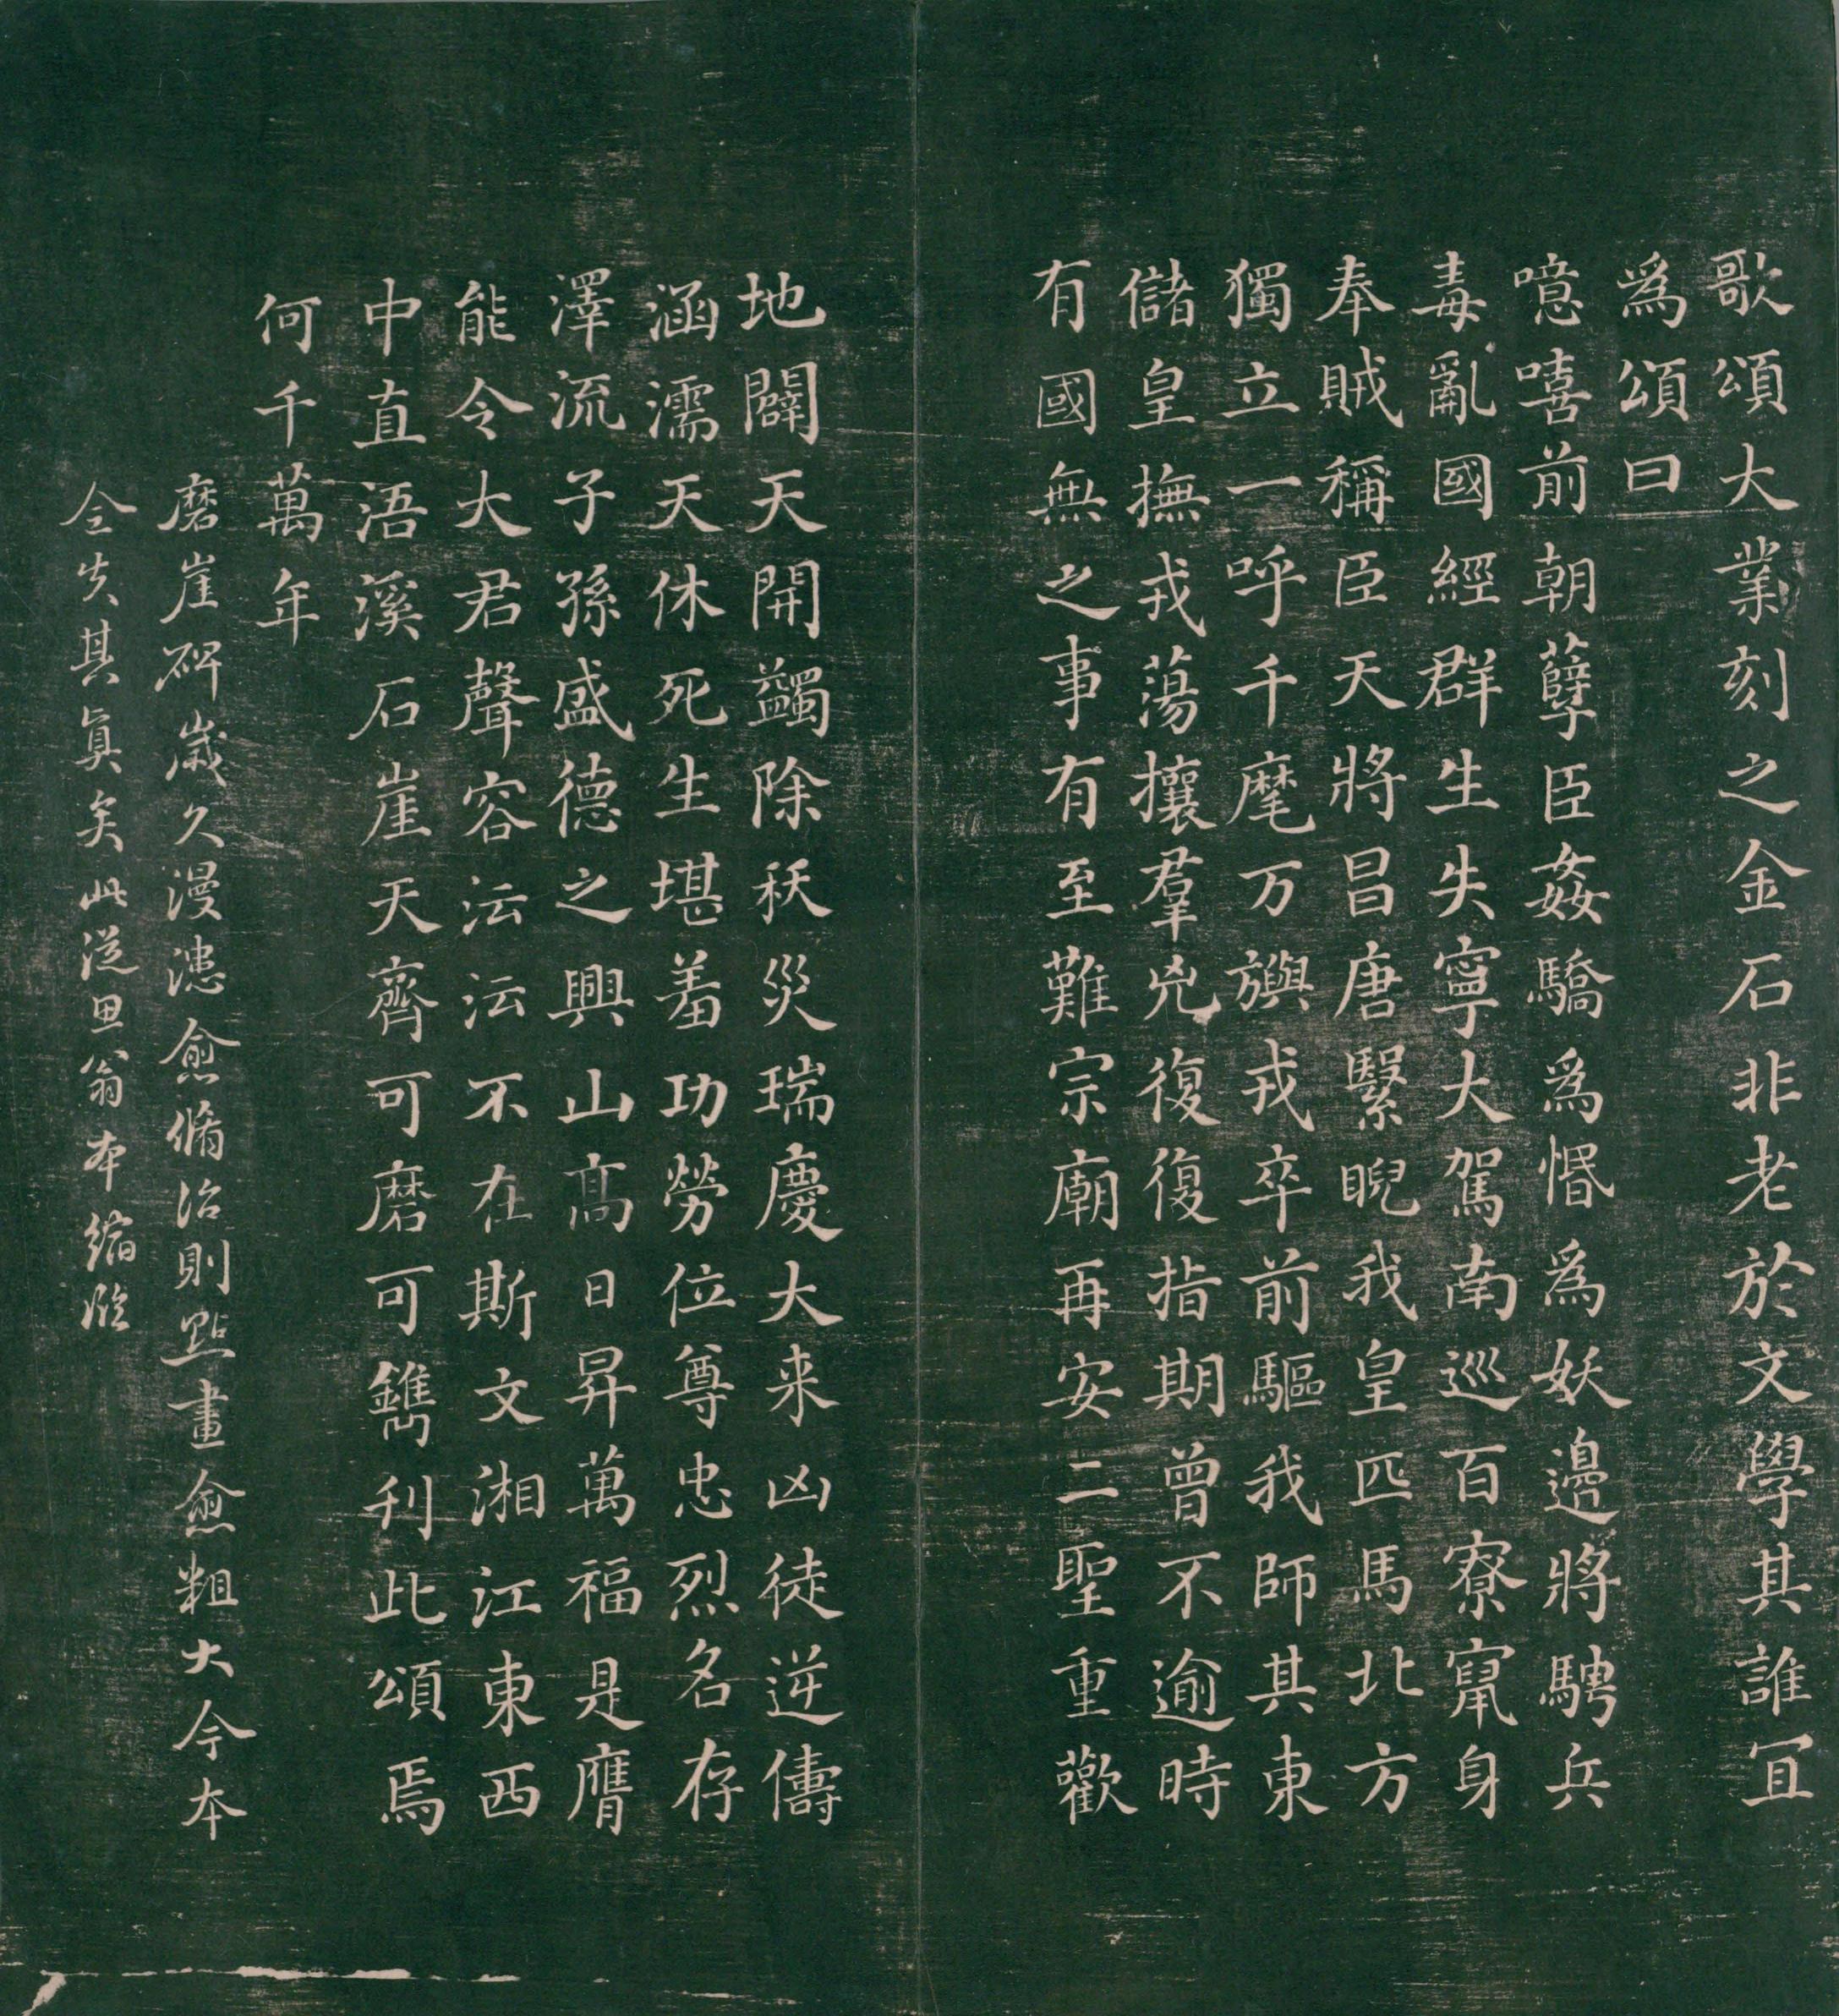 歌頌大業刻之金石非老於文學其誰宜
爲頌曰
噫嘻前朝孽臣姦驕爲惛爲妖邊將騁兵
毒亂國經群生失寧大駕南巡百寮竄身
奉賊稱臣天將昌唐繄睨我皇匹馬北方
獨立一呼千麾万旟戎卒前驅我師其東
儲皇撫戎蕩攘羣兇復復指期曾不逾時
有國無之事有至難宗廟再安二聖重歡
地闢天開蠲除祅災瑞慶大来凶徒逆儔
涵濡天休死生堪羞功勞位尊忠烈名存
澤流子孫盛德之興山髙日昇萬福是膺
能令大君聲容沄沄不在斯文湘江東西
中直浯溪石崖天齊可磨可鐫刊此頌焉
何千萬年
磨崖碑歲久漫漶愈脩治則點畫愈粗大今本
全失其眞矣此從覃翁本縮臨